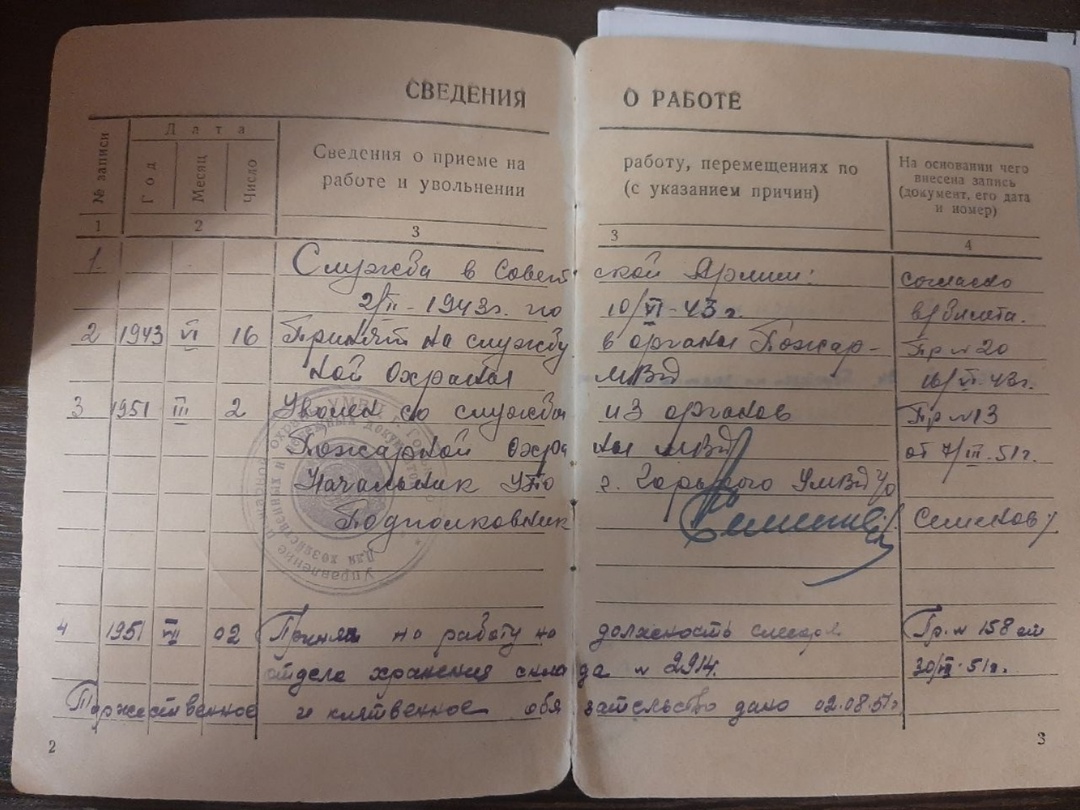 СВЕДЕНИЯ О РАБОТЕ
№ записи
Дата
Год
Месяц
Число
Сведения о приеме на работу, перемещениях по
работе и увольнении (с указанием причин)
На основании чего
внесена запись
(документ, его дата
и номер)
1 2 3 3 4
1. Служба в Совет ской Армии: согласно
2/II-1943г. по 10/VI-43г. в/билета.
2 1943 VI 16 Принят на службу в органы Пожар- Пр №20
ной Охраны МВД 16/VI-43г.
3 1951 III 2 Уволен со службы из органов Пр №13
Пожарной Охра ны МВД от 7/III-51г.
Начальник УПО г. Горького УМВД
Подполковник Семенов/
4 1951 02 Принят на работу на должность слесаря Пр. № 158 от
отдела хранения скла да № 2914. 51г.
Торжественное и клятвенное обя зательство дано 02.08.51г
2
3